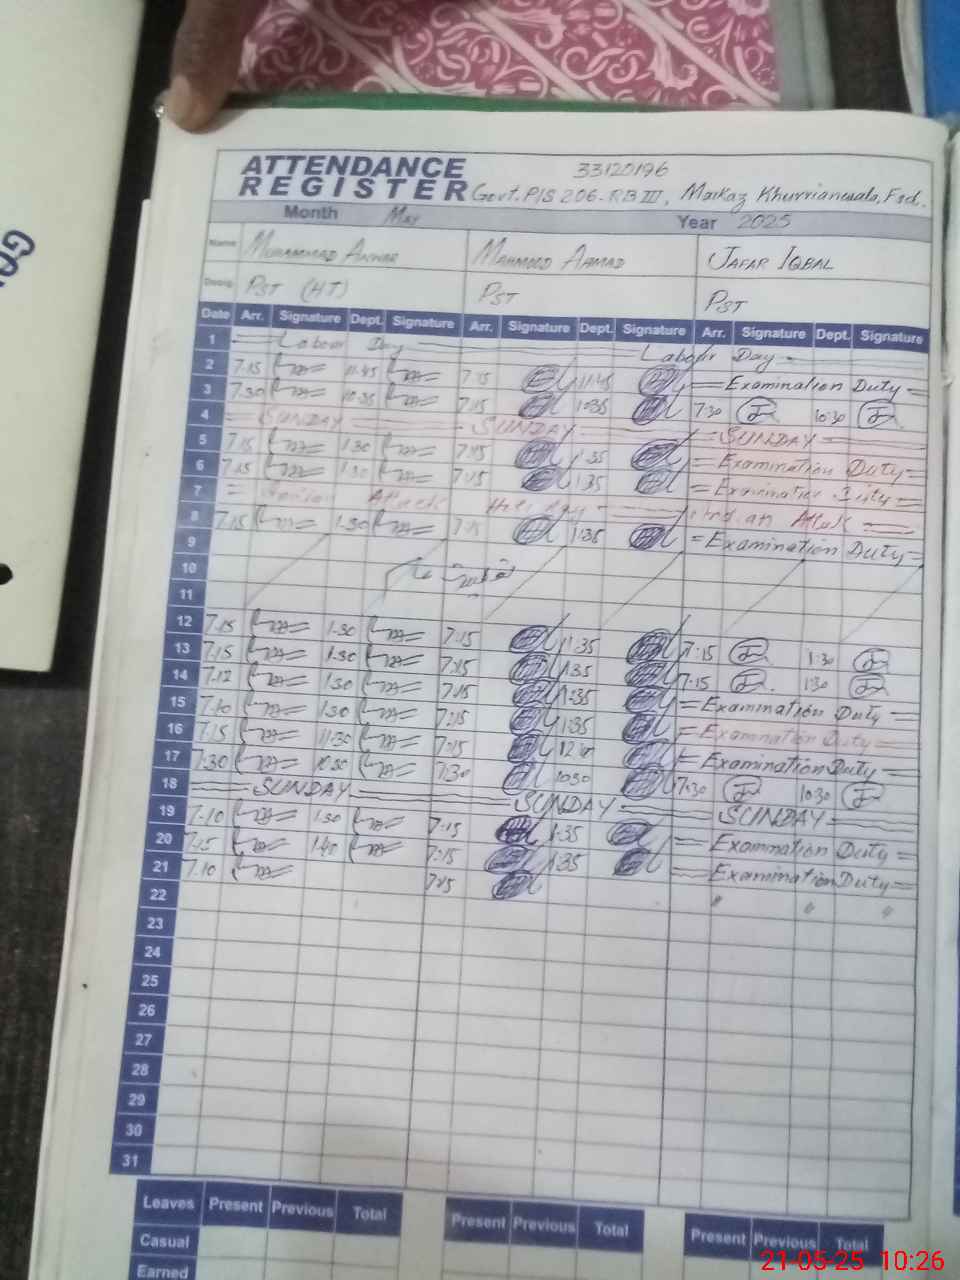 ATTENDANCE REGISTER
33120196
Govt. P/S 206. RB III, Markaz Khurrianwala, Fsd.
Month May Year 2025
Name Muhammad Anwar Mahmood Ahmad Jafar Iqbal
Desig. PST (HT) PST PST
Date Arr. Signature Dept. Signature Arr. Signature Dept. Signature Arr. Signature Dept. Signature
1 Labour Day Labour Day
2 7.15 11.45 7.15 11.45 Examination Duty
3 7.30 10.35 7.15 10.35 7.30 10.30
4 SUNDAY SUNDAY SUNDAY
5 7.15 1.30 7.15 1.35 Examination Duty
6 7.15 1.30 7.15 1.35 Examination Duty
7 Attack Holiday Attack
8 7.15 1.30 7.15 1.35 Examination Duty
9
10
11
12 7.15 1.30 7.15 1.35 7.15 1.30
13 7.15 1.30 7.15 1.35 7.15 1.30
14 7.12 1.30 7.15 1.35 Examination Duty
15 7.10 1.30 7.15 1.35 Examination Duty
16 7.15 11.30 7.15 Examination Duty
17 7.30 10.30 7.30 10.30 7.30 10.30
18 SUNDAY SUNDAY SUNDAY
19 7.10 1.30 7.15 1.35 Examination Duty
20 7.15 1.40 7.15 1.35 Examination Duty
21 7.10 7.15 " " "
22
23
24
25
26
27
28
29
30
31
Leaves Present Previous Total Present Previous Total Present Previous Total
Casual
Earned
21-05-25 10:26